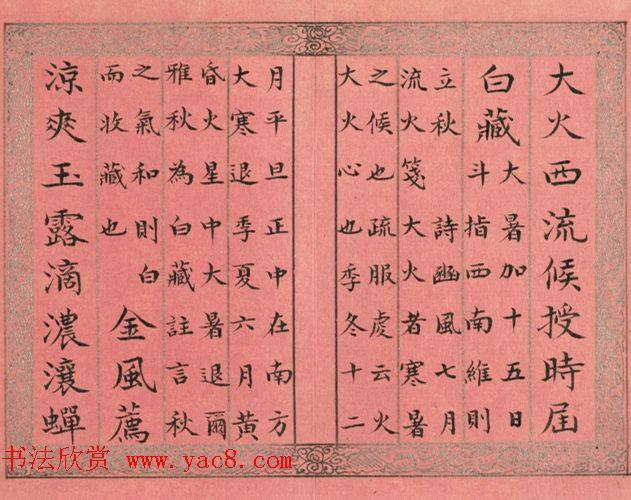 大火西流候授時屆
白藏
大暑加十五日
斗指西南維則
立秋 詩豳風七月
流火箋 大火者寒暑
之候也疏服虔云火
大火心也季冬十二
月平旦正中在南方
大寒退季夏六月黃
昏火星中大暑退爾
雅秋為白藏註言秋
之氣和則白
而收藏也
金風薦
涼爽玉露滴濃瀼蟬
书法欣赏 www.yac8.com